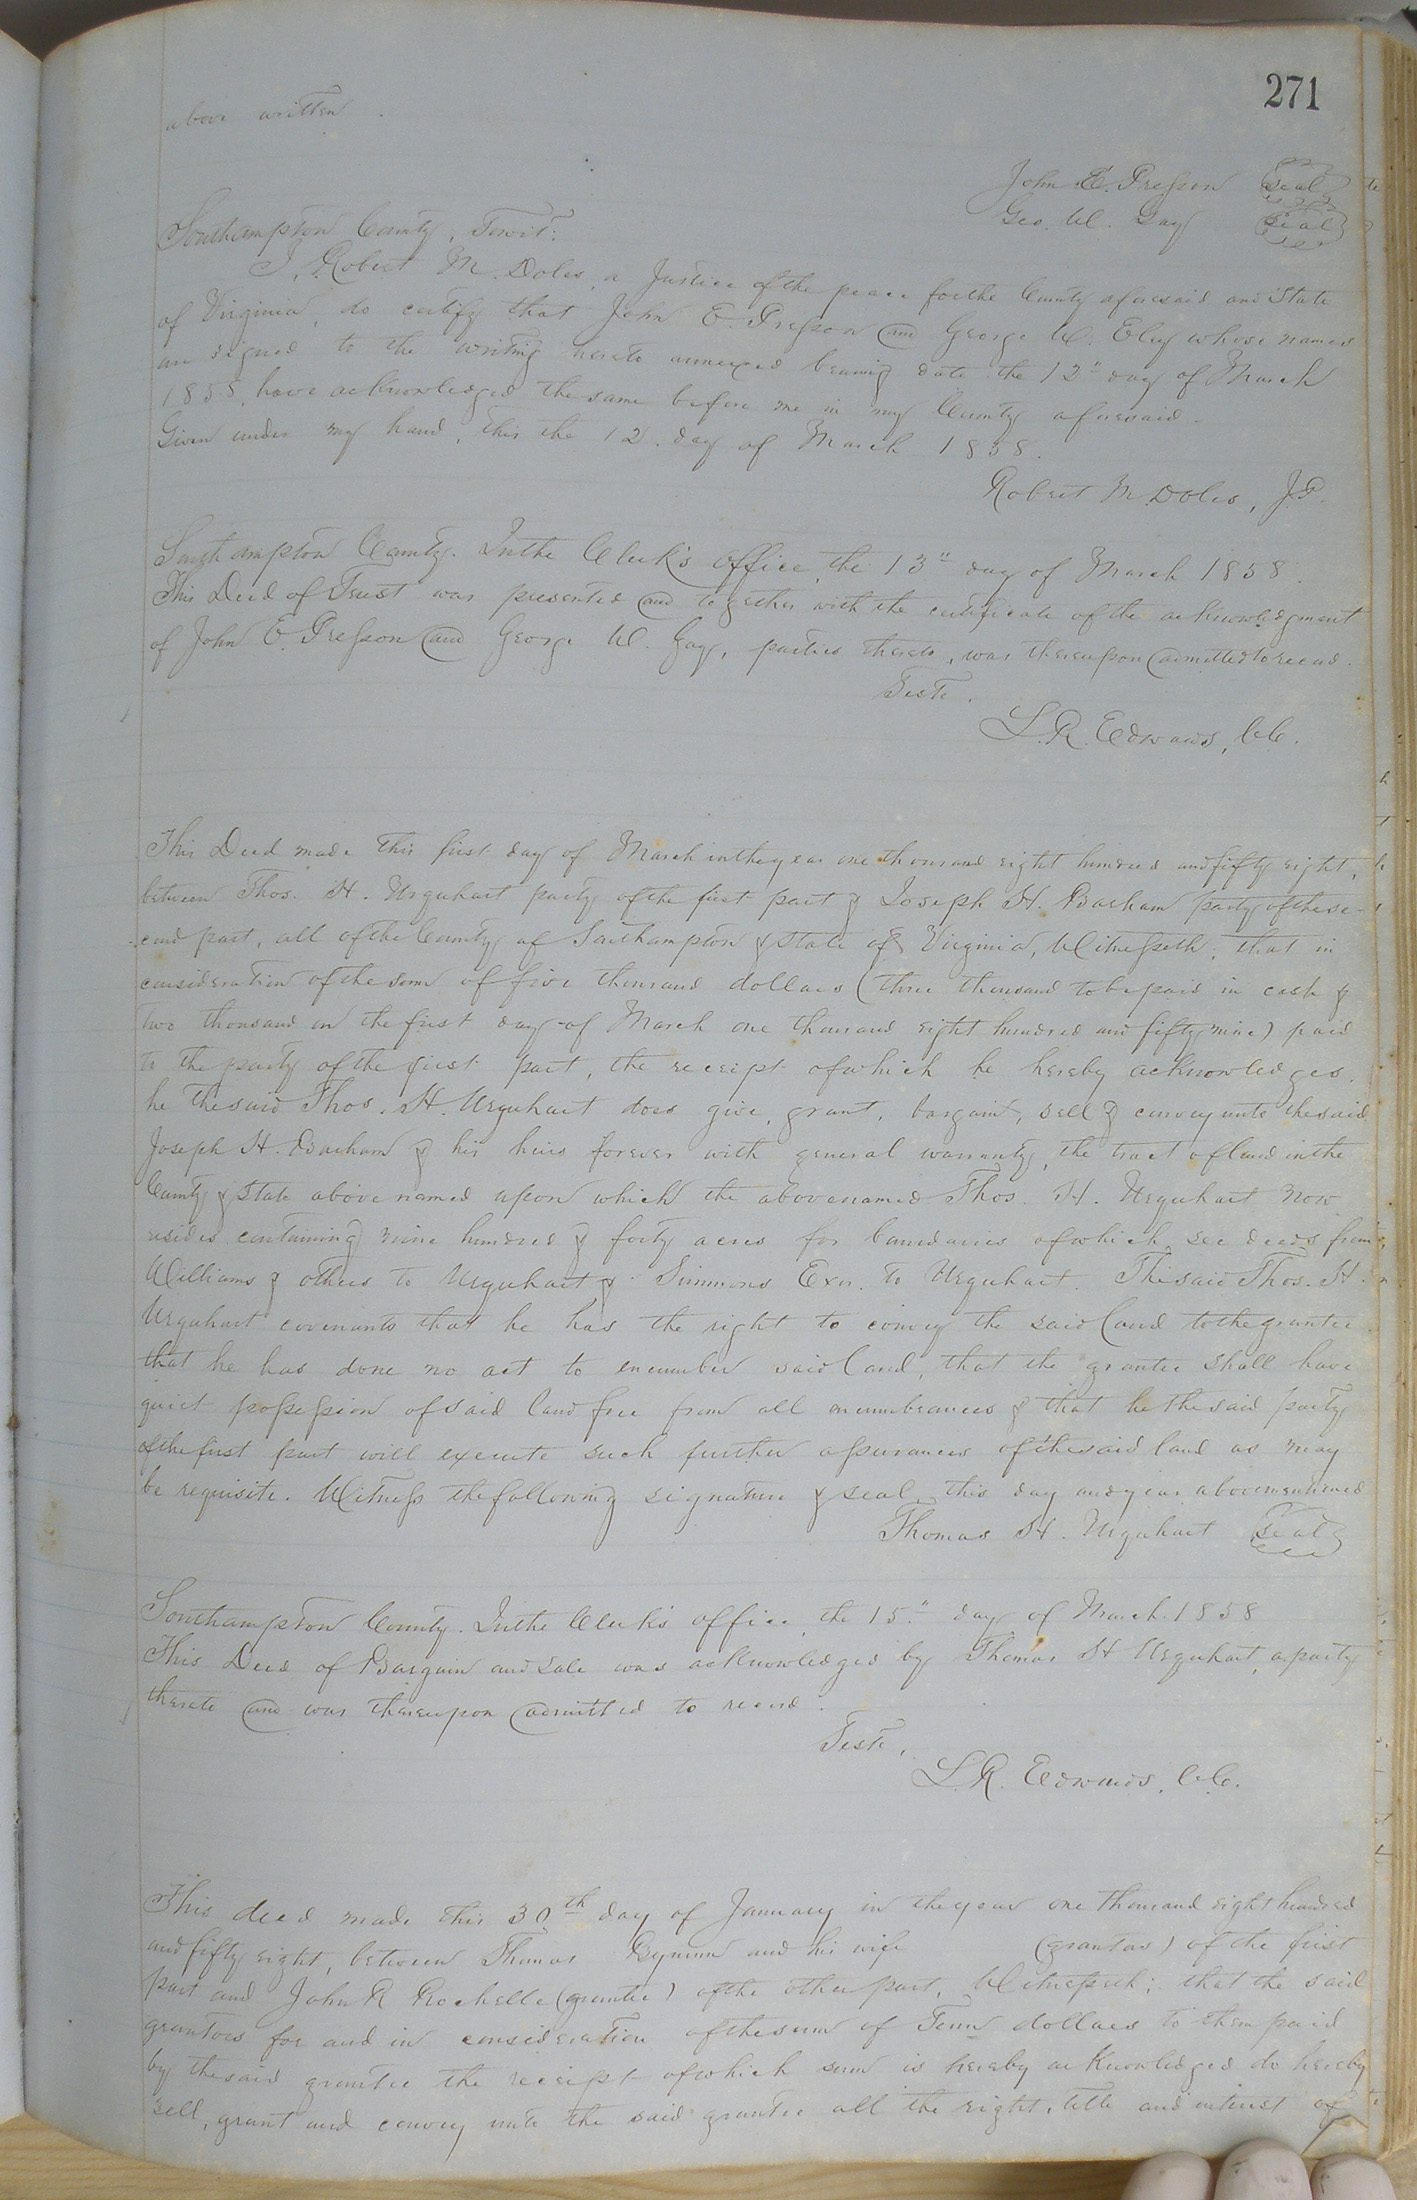 271
above written.
John E. Presson Seal
Geo. W. Gay Seal
Southampton County, Towit:
I, Robert M. Doles, a Justice of the peace for the County aforesaid and State
of Virginia, do certify that John E. Presson and George W. Eley whose names
are signed to the writing hereto annexed bearing date the 12" day of March
1858, have acknowledged the same before me in my County aforesaid.
Given under my hand, this the 12. day of March 1858.
Robert M. Doles, J.P.
Southampton County. In the Clerk's office, the 13" day of March 1858.
This Deed of Trust was presented and together with the certificate of the acknowledgment
of John E. Presson and George W. Gay, parties thereto, was thereupon admitted to record.
Teste.
L.R. Edwards, C.C.
This Deed made this first day of March in the year one thousand eight hundred and fifty eight,
between Thos. H. Urquhart party of the first part & Joseph H. Barham party of the se-
-cond part, all of the County of Southampton & State of Virginia, Witnesseth; that in
consideration of the sum of five thousand dollars (three thousand to be paid in cash &
two thousand on the first day of March one thousand eight hundred and fifty nine) paid
to the party of the first part, the receipt of which he hereby acknowledges,
he the said Thos. H. Urquhart does give, grant, bargain, sell & convey unto the said
Joseph H. Barham & his heirs forever with general warranty, the tract of land in the
County & State above named upon which the above named Thos. H. Urquhart now
resides containing nine hundred & forty acres for boundaries of which see deeds from
Williams & others to Urquhart & Simmons Exor. to Urquhart. The said Thos. H.
Urquhart covenants that he has the right to convey the said land to the grantee
that he has done no act to encumber said land, that the grantee shall have
quiet possession of said land free from all incumbrances & that he the said party
of the first part will execute such further assurances of the said land as may
be requisite. Witness the following signature & seal, this day and year above mentioned
Thomas H. Urquhart Seal
Southampton County. In the Clerk's office, the 15." day of March 1858
This Deed of Bargain and Sale was acknowledged by Thomas H Urquhart, a party
thereto and was thereupon admitted to record.
Teste,
L.R. Edwards, C.C.
This deed made this 30th day of January in the year one thousand eight hundred
and fifty eight, between Thomas and his wife (grantors) of the first
part and John R Rochelle (grantee) of the other part, Witnesseth; that the said
grantors for and in consideration of the sum of Tenn dollars to them paid
by the said grantee the receipt of which sum is hereby acknowledged do hereby
sell, grant and convey unto the said grantee all the right, title and interest of